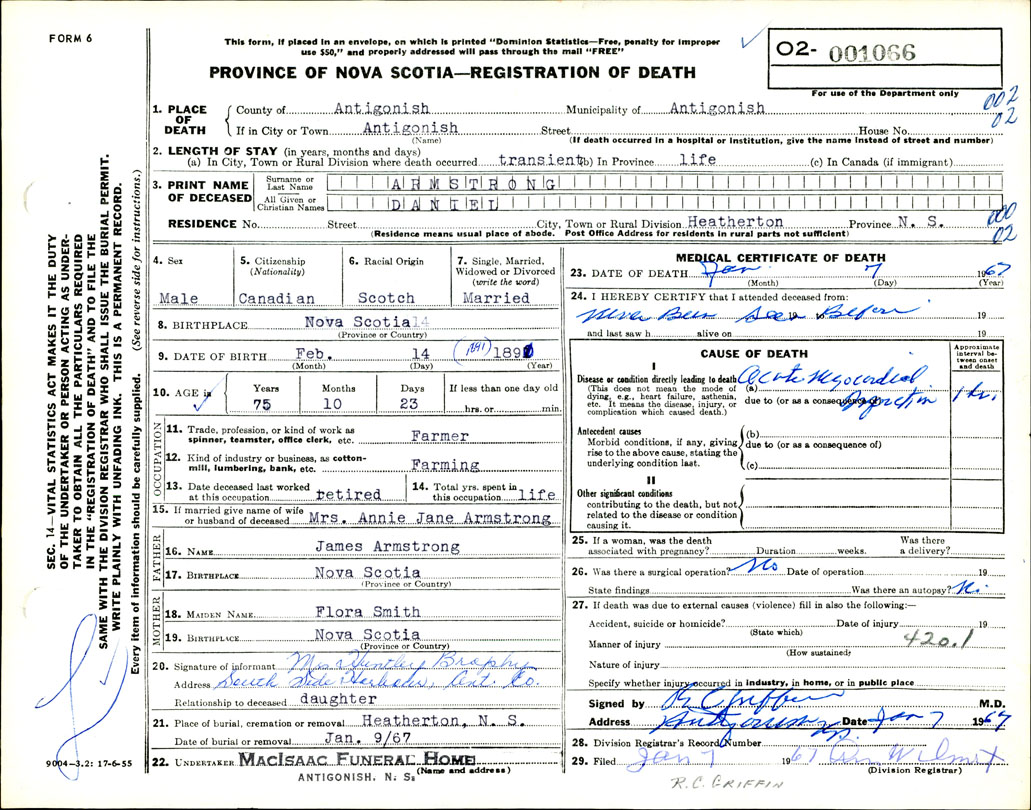 FORM 6
This form, if placed in an envelope, on which is printed "Dominion Statistics—Free, penalty for improper
use $50," and properly addressed will pass through the mail "FREE"
PROVINCE OF NOVA SCOTIA—REGISTRATION OF DEATH
O2- 001066
For use of the Department only
002
02
1. PLACE OF DEATH
County of Antigonish Municipality of Antigonish
If in City or Town Antigonish Street House No.
(Name) (If death occurred in a hospital or institution, give the name instead of street and number)
2. LENGTH OF STAY (in years, months and days)
(a) In City, Town or Rural Division where death occurred transient (b) In Province life (c) In Canada (if immigrant)
3. PRINT NAME OF DECEASED
Surname or Last Name ARMSTRONG
All Given or Christian Names DANIEL
RESIDENCE No. Street City, Town or Rural Division Heatherton Province N. S.
(Residence means usual place of abode. Post Office Address for residents in rural parts not sufficient)
000
02
4. Sex
Male
5. Citizenship (Nationality)
Canadian
6. Racial Origin
Scotch
7. Single, Married, Widowed or Divorced (write the word)
Married
8. BIRTHPLACE Nova Scotia
(Province or Country)
9. DATE OF BIRTH Feb. 14 (1891) 1890
(Month) (Day) (Year)
10. AGE in
Years 75
Months 10
Days 23
If less than one day old
hrs. or min.
OCCUPATION
11. Trade, profession, or kind of work as spinner, teamster, office clerk, etc. Farmer
12. Kind of industry or business, as cotton-mill, lumbering, bank, etc. Farming
13. Date deceased last worked at this occupation retired
14. Total yrs. spent in this occupation life
15. If married give name of wife or husband of deceased Mrs. Annie Jane Armstrong
FATHER
16. NAME James Armstrong
17. BIRTHPLACE Nova Scotia
(Province or Country)
MOTHER
18. MAIDEN NAME Flora Smith
19. BIRTHPLACE Nova Scotia
(Province or Country)
20. Signature of informant Mrs Huntley Brophy
Address South Side Harbour, Ant. Co.
Relationship to deceased daughter
21. Place of burial, cremation or removal Heatherton, N. S.
Date of burial or removal Jan. 9/67
22. UNDERTAKER MACISAAC FUNERAL HOME
ANTIGONISH, N. S. (Name and address)
MEDICAL CERTIFICATE OF DEATH
23. DATE OF DEATH Jan 7 1967
(Month) (Day) (Year)
24. I HEREBY CERTIFY that I attended deceased from:
Never Been Seen 19 to Before 19
and last saw h alive on 19
CAUSE OF DEATH
Approximate interval between onset and death
I
Disease or condition directly leading to death
(This does not mean the mode of dying, e.g., heart failure, asthenia, etc. It means the disease, injury, or complication which caused death.)
(a) Acute Myocardial
due to (or as a consequence of) Infarction 1 hr.
Antecedent causes
Morbid conditions, if any, giving rise to the above cause, stating the underlying condition last.
(b)
due to (or as a consequence of)
(c)
II
Other significant conditions
contributing to the death, but not related to the disease or condition causing it.
25. If a woman, was the death associated with pregnancy? Duration weeks. Was there a delivery?
26. Was there a surgical operation? No Date of operation 19
State findings Was there an autopsy? No
27. If death was due to external causes (violence) fill in also the following:—
Accident, suicide or homicide? Date of injury 19
(State which)
Manner of injury 420.1
(How sustained)
Nature of injury
Specify whether injury occurred in industry, in home, or in public place
Signed by R C Griffin M.D.
Address Antigonish Date Jan 7 1967
28. Division Registrar's Record Number
29. Filed Jan 7 1967
(Division Registrar)
R.C. GRIFFIN
SEC. 14—VITAL STATISTICS ACT MAKES IT THE DUTY
OF THE UNDERTAKER OR PERSON ACTING AS UNDER-
TAKER TO OBTAIN ALL THE PARTICULARS REQUIRED
IN THE "REGISTRATION OF DEATH" AND TO FILE THE
SAME WITH THE DIVISION REGISTRAR WHO SHALL ISSUE THE BURIAL PERMIT.
WRITE PLAINLY WITH UNFADING INK. THIS IS A PERMANENT RECORD.
Every item of information should be carefully supplied. (See reverse side for instructions.)
9004-3.2: 17-6-55